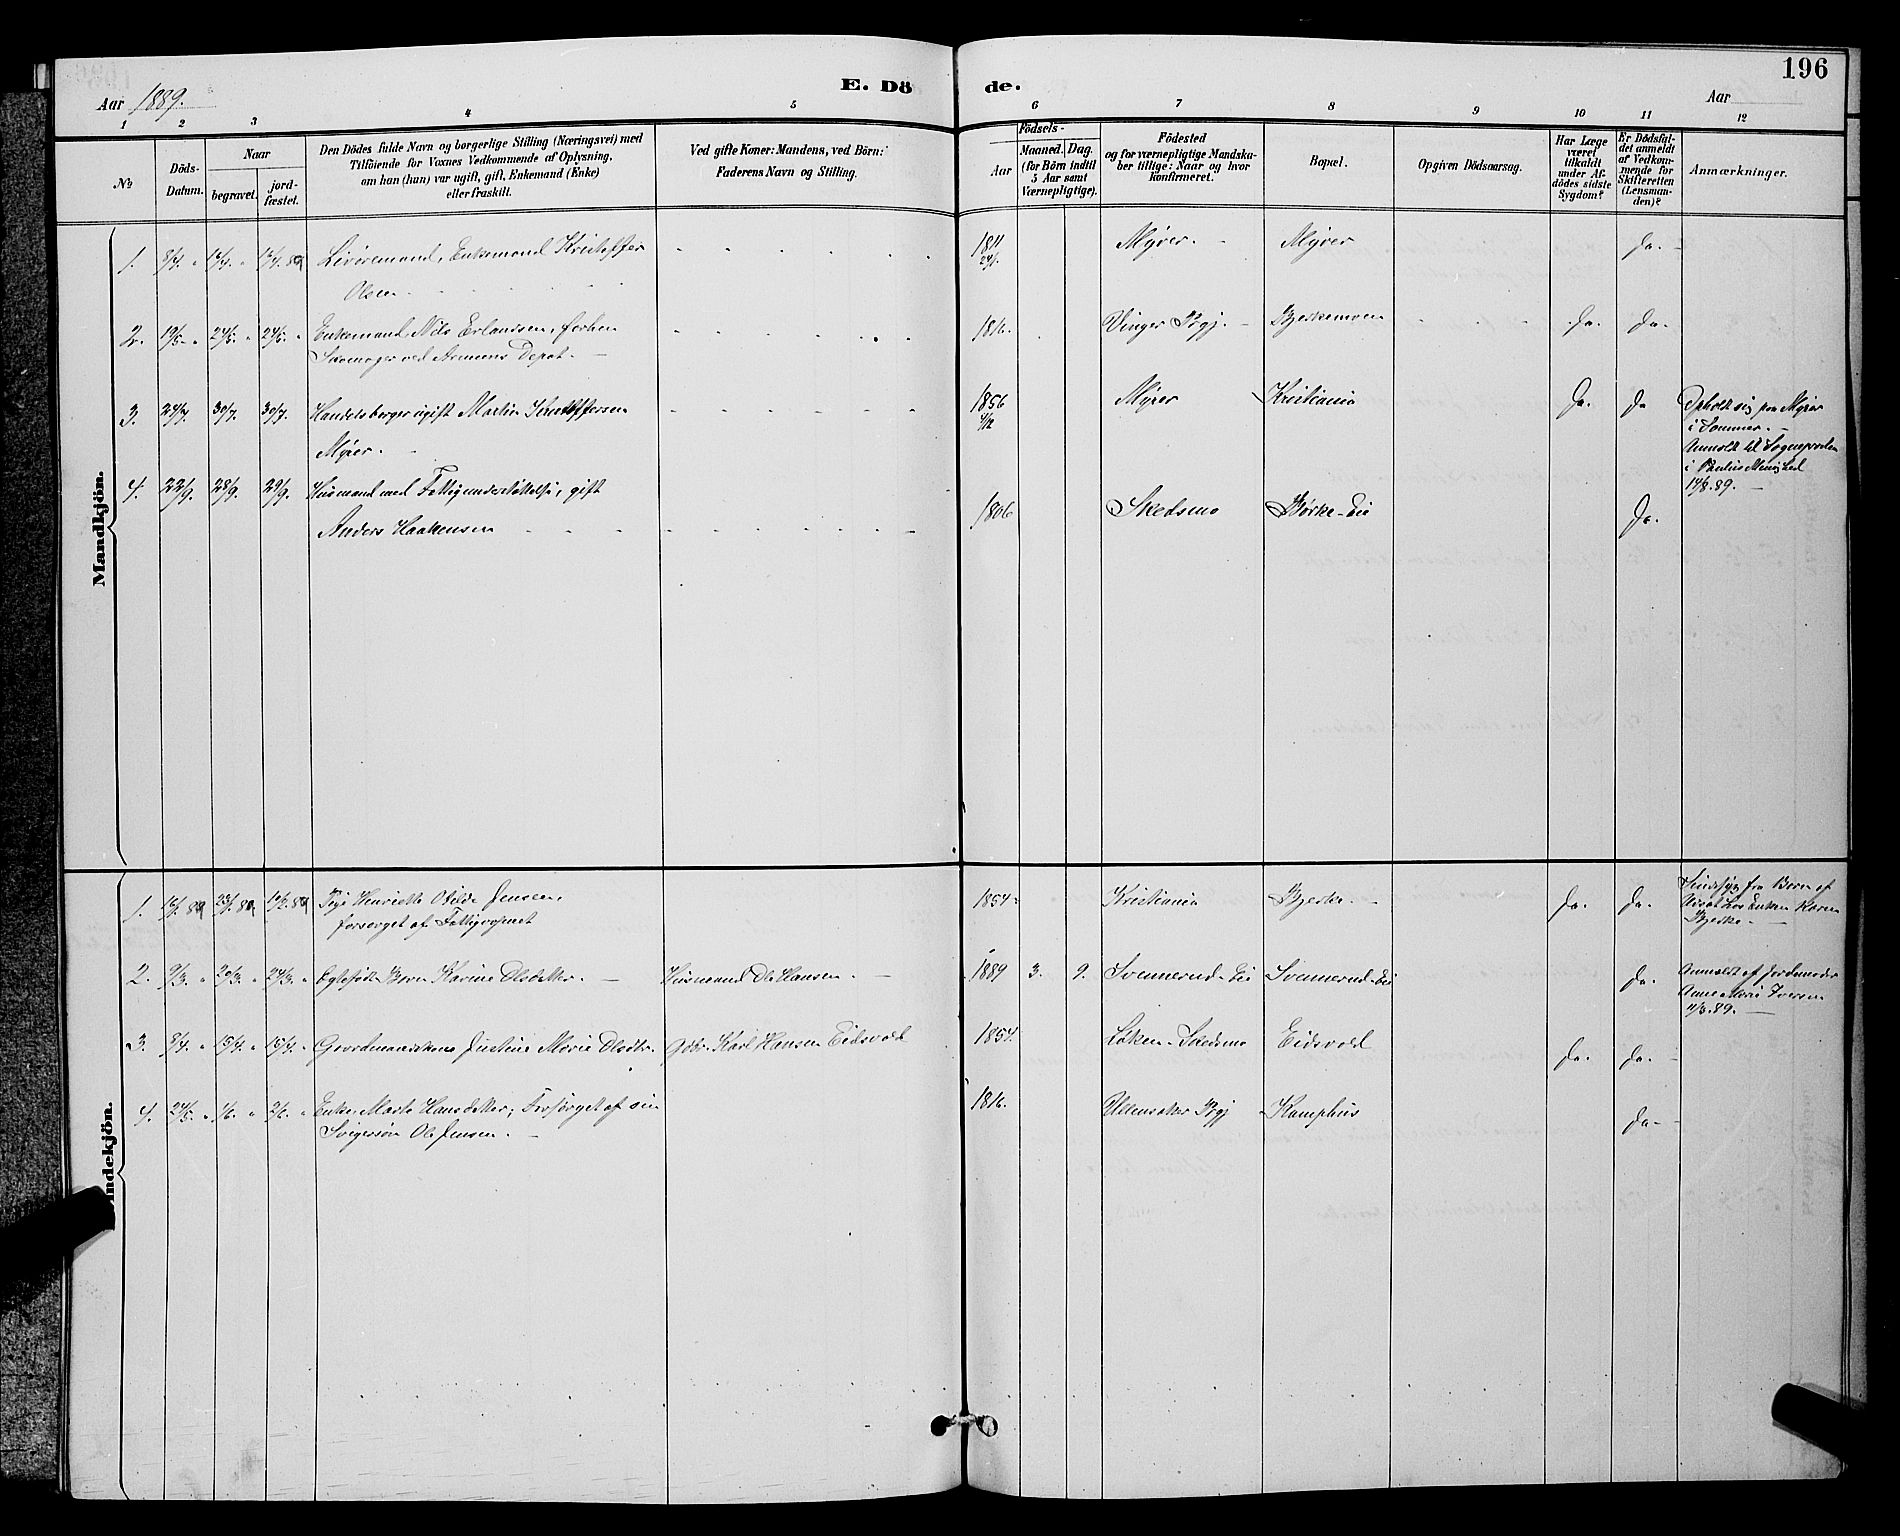 196
Aar 1889.
E. Dö de.
Aar
1 2 3 4 5 6 7 8 9 10 11 12
No
Döds-
Datum.
Naar
begravet.
jord-
fæstet.
Den Dödes fulde Navn og borgerlige Stilling (Næringsvei) med
Tilföiende for Voxnes Vedkommende af Oplysning,
om han (hun) var ugift, gift, Enkemand (Enke)
eller fraskilt.
Ved gifte Koner: Mandens, ved Börn:
Faderens Navn og Stilling.
Födsels-
Aar
Maaned. Dag.
(for Börn indtil
5 Aar samt
Værnepligtige).
Födested
og for værnepligtige Mandska-
ber tillige: Naar og hvor
konfirmeret.
Bopæl.
Opgiven Dödsaarsag.
Har Læge
været
tilkaldt
under Af-
dödes sidste
Sygdom?
Er Dödsfal-
det anmeldt
af Vedkom-
mende for
Skifteretten
(Lensman-
den)?
Anmærkninger.
Mandkjön.
1. 8/4. " 16/4. " 16/4. 89 Enkemand Kristoffer 1811 Myrer. - Myrer Ja. -
Olsen 24/1.
2. 19/5 - " 24/5. " 24/5. " Enkemand Nils Erlandsen, forhen 1816. Vinger Prgj. - Bjerkemoen Ja. Ja. -
ved Armeens Depot. -
3. 24/7. 30/7. 30/7. Handelsborger ugift Martin Kristoffersen 1856 Myrer Kristiania Ja. Ja Opholdt sig paa Myrer
Myrer. - 4/12 i Sommer. -
Anmeldt til Sognepresten
i Paulus Menighed
14/8. 89. -
4. 22/9. 28/9. 29/9. Husmand med Fattigunderstøttelse, gift
Anders Haakensen 1806 Skedsmo Børke-Eie Ja.
Kvindekjön.
1. 16/1. 89 23/1. 89 10/2. 89 Pige Henriette Otilde Jensen, 1854 Kristiania Bjerke. - Ja. Ja. Sindssyg fra Barn af
forsørget af Fattigvæsenet Enken Karen
Bjerke. -
2. 9/3. " 20/3. " 24/3. " Ægtefødt Barn Karine Olsdatter. - Husmand Ole Hansen. - 1889 3. 9. Svennerud-Eie Svennerud-Eie Ja. Anmeldt af Jordemoder
Anne Marie Iversen
11/3. 89. -
3. 8/4. " 15/4. " 15/4. " Gaardmandskone Justine Marie Olsdtr. Gdbr. Karl Hansen Eidsvold 1854. Løken-Skedsmo Eidsvold Ja. Ja. -
4. 24/5. " 1/6. " 2/6. " Enke Marte Hansdatter; Forsørget af sin 1816. Ullensaker Prgj Kamphus Ja. -
Svigersøn Ole Jensen. -